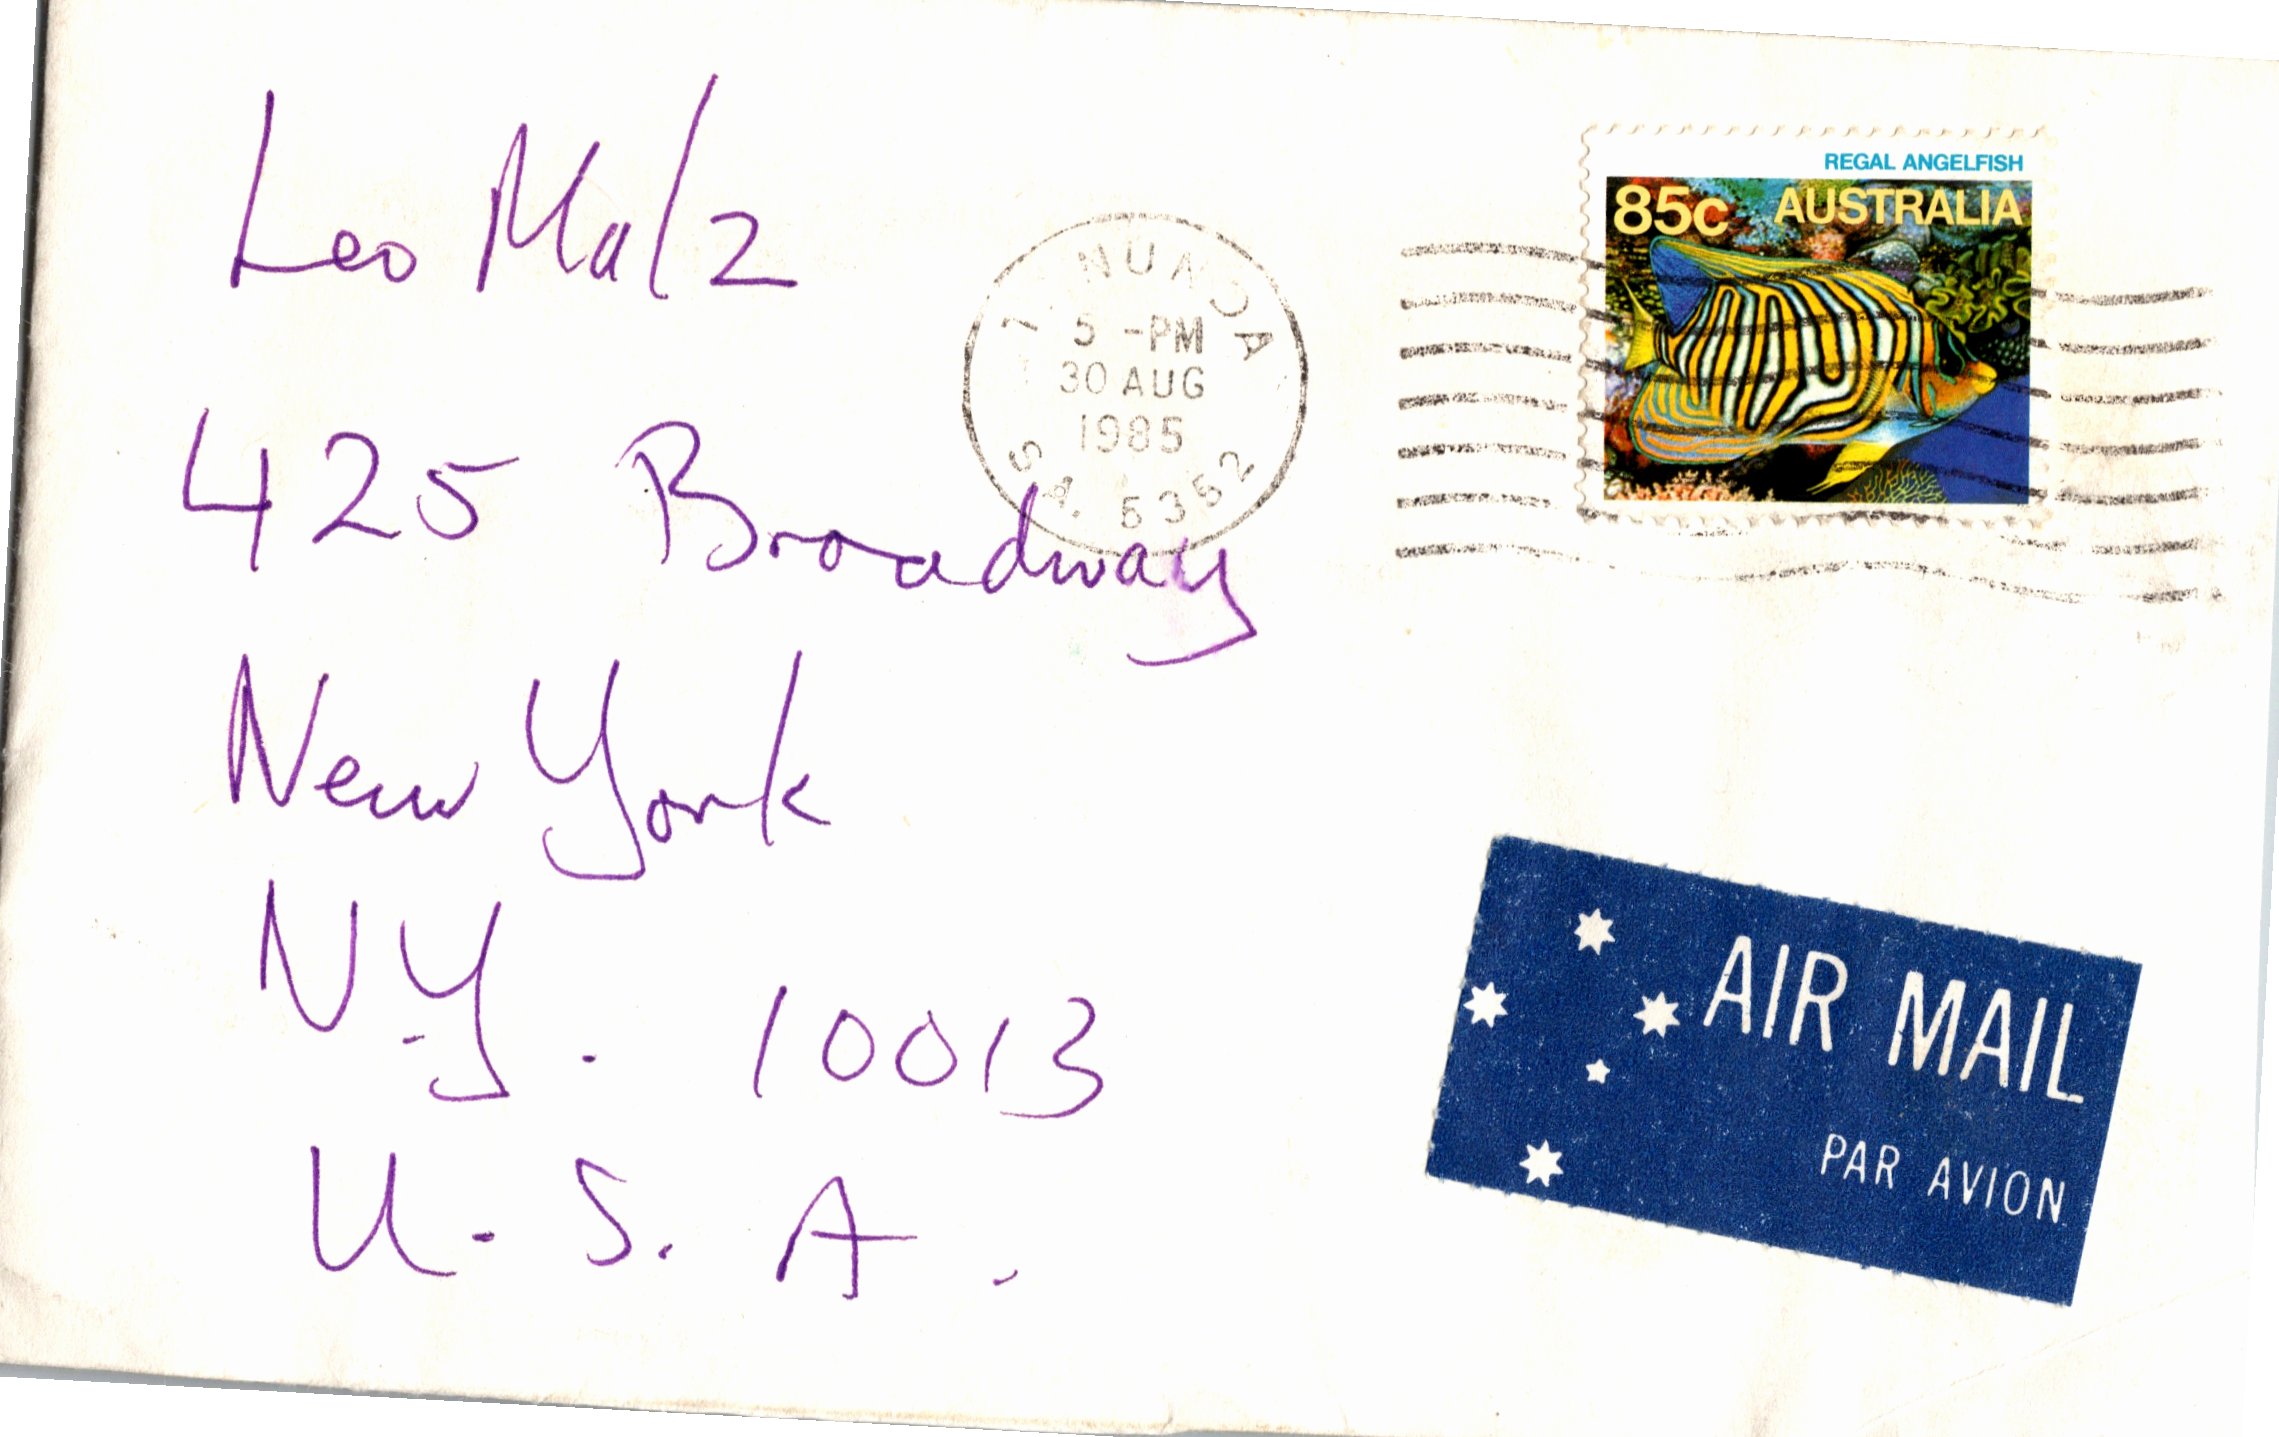 Leo Malz
425 Broadway
New York
N.Y. 10013
U.S.A.
5 -PM
30 AUG
1985
S.A. 5352
REGAL ANGELFISH
85c AUSTRALIA
AIR MAIL
PAR AVION